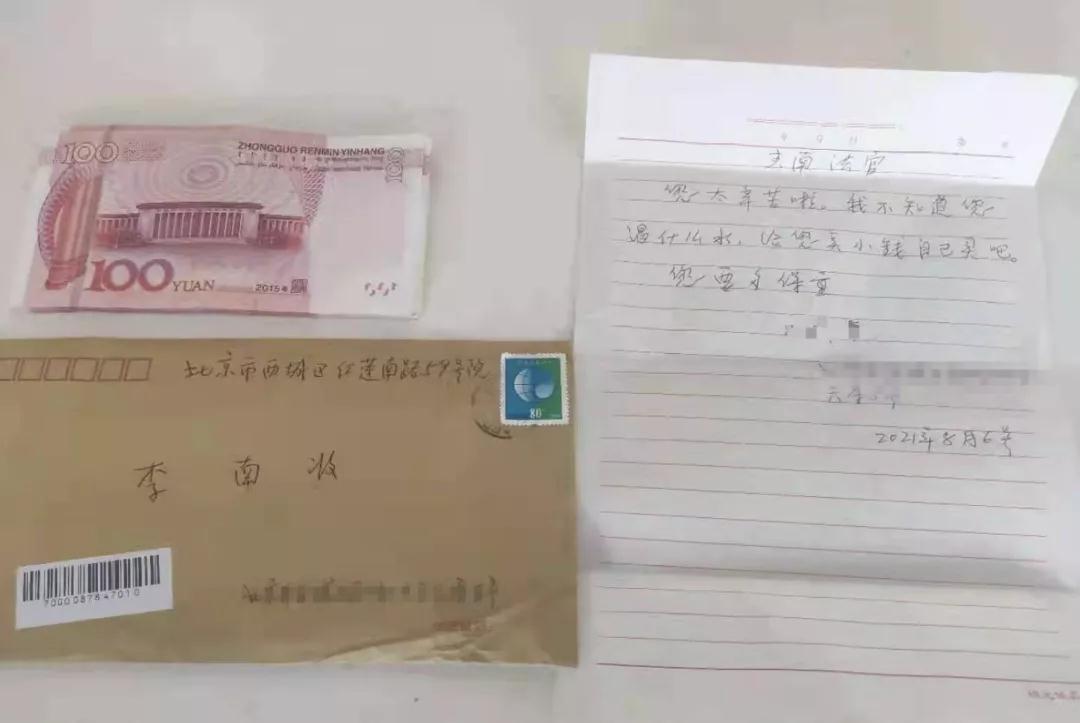 100
ZHONGGUO RENMIN YINHANG
100
100 YUAN
2015年
北京市西城区红莲南路57号院
80
李 南 收
李南法官
您太辛苦啦。我不知道您
喝什么水,给您点小錢自己买吧。
您要多保重
2021年8月6号